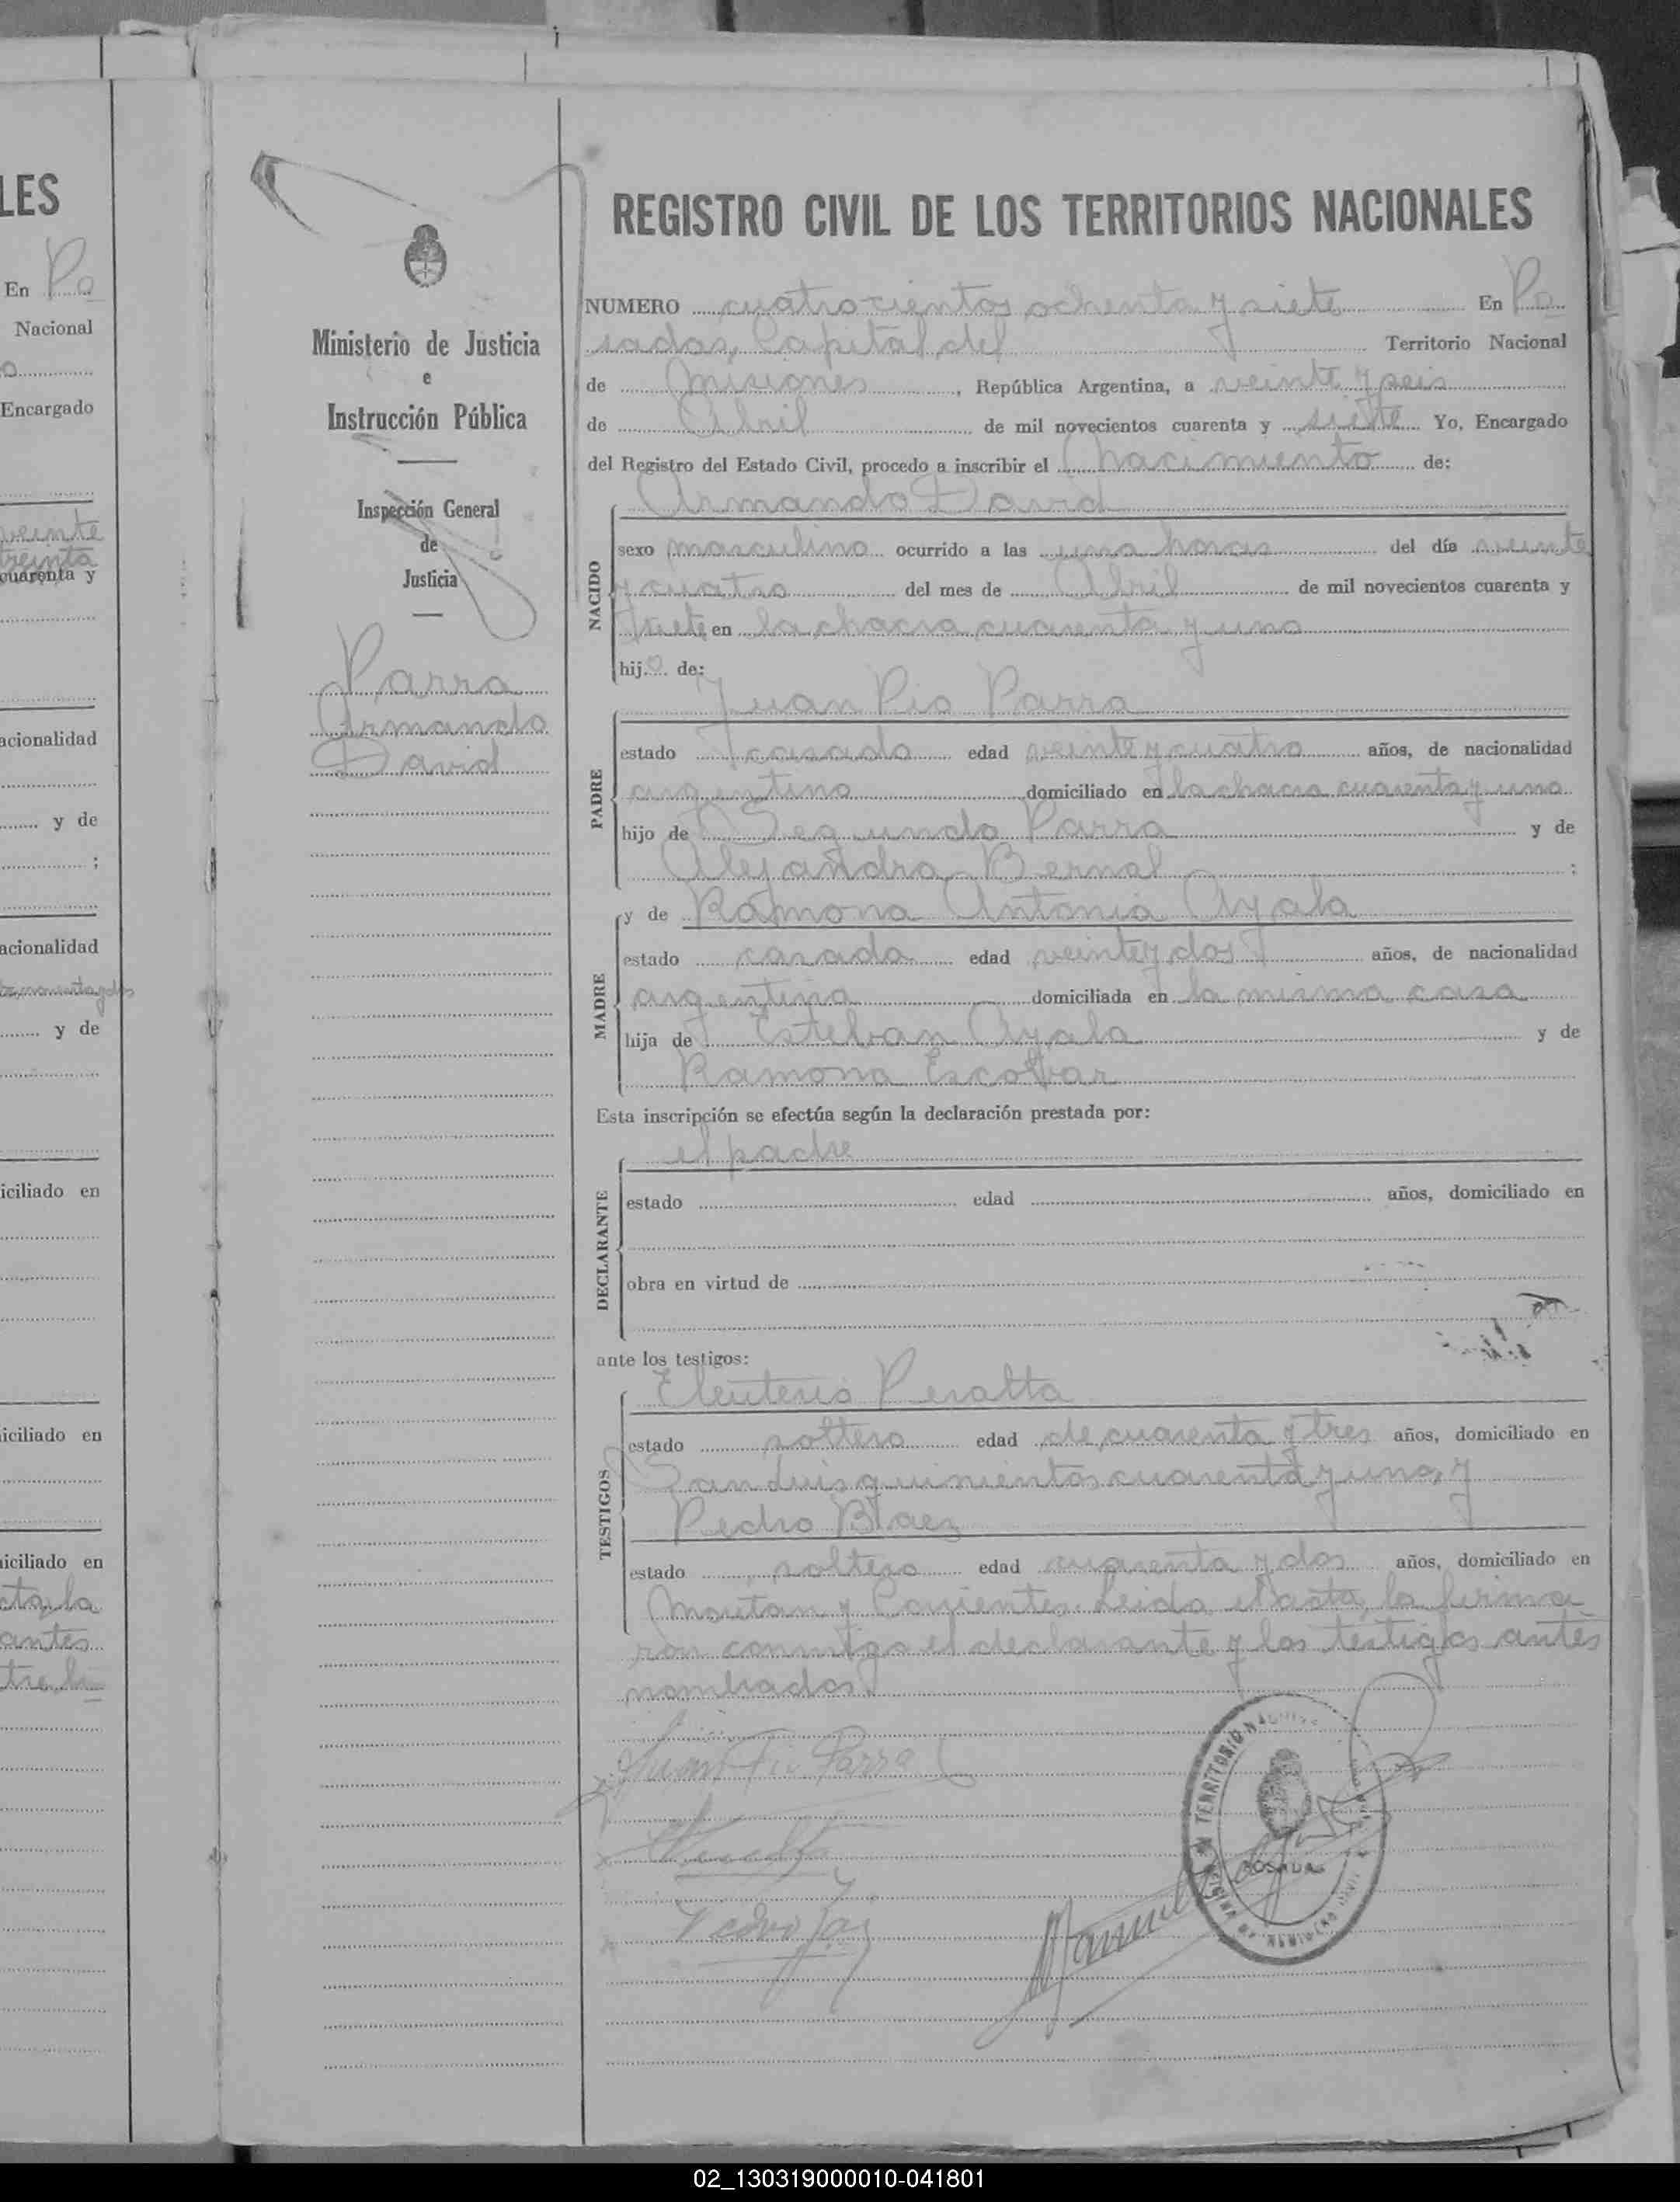 LES
En Po
Nacional
Encargado
veinte
treinta
cuarenta y
acionalidad
y de
;
acionalidad
y de
iciliado en
iciliado en
iciliado en
antes
Ministerio de Justicia
e
Instrucción Pública
Inspección General
de
Justicia
Parra
Armando
David
REGISTRO CIVIL DE LOS TERRITORIOS NACIONALES
NUMERO cuatrocientos ochenta y siete En Po
sadas, Capital del Territorio Nacional
de Misiones, República Argentina, a veinte y seis
de Abril de mil novecientos cuarenta y siete Yo, Encargado
del Registro del Estado Civil, procedo a inscribir el nacimiento de:
Armando David
NACIDO
sexo masculino ocurrido a las una horas del día veinte
y cuatro del mes de Abril de mil novecientos cuarenta y
siete en la chacra cuarenta y uno
hijo de:
Juan Pio Parra
PADRE
estado casado edad veinte y cuatro años, de nacionalidad
argentino domiciliado en la chacra cuarenta y uno
hijo de Segundo Parra y de
Alejandra Bernal ;
y de Ramona Antonia Ayala
MADRE
estado casada edad veinte y dos años, de nacionalidad
argentina domiciliada en la misma casa
hija de Esteban Ayala y de
Ramona Escobar
Esta inscripción se efectúa según la declaración prestada por:
el padre
DECLARANTE
estado edad años, domiciliado en
obra en virtud de
ante los testigos:
Eleuterio Peralta
TESTIGOS
estado soltero edad de cuarenta y tres años, domiciliado en
San Luis quinientos cuarenta y uno, y
Pedro Blaez
estado soltero edad cuarenta y dos años, domiciliado en
y Corrientes. Leida el acta, la firma
ron conmigo el declarante y los testigos antes
nombrados.
Juan Pio Parra
Pedro
Manuel
TERRITORIO NACIONAL
POSADAS
02_130319000010-041801